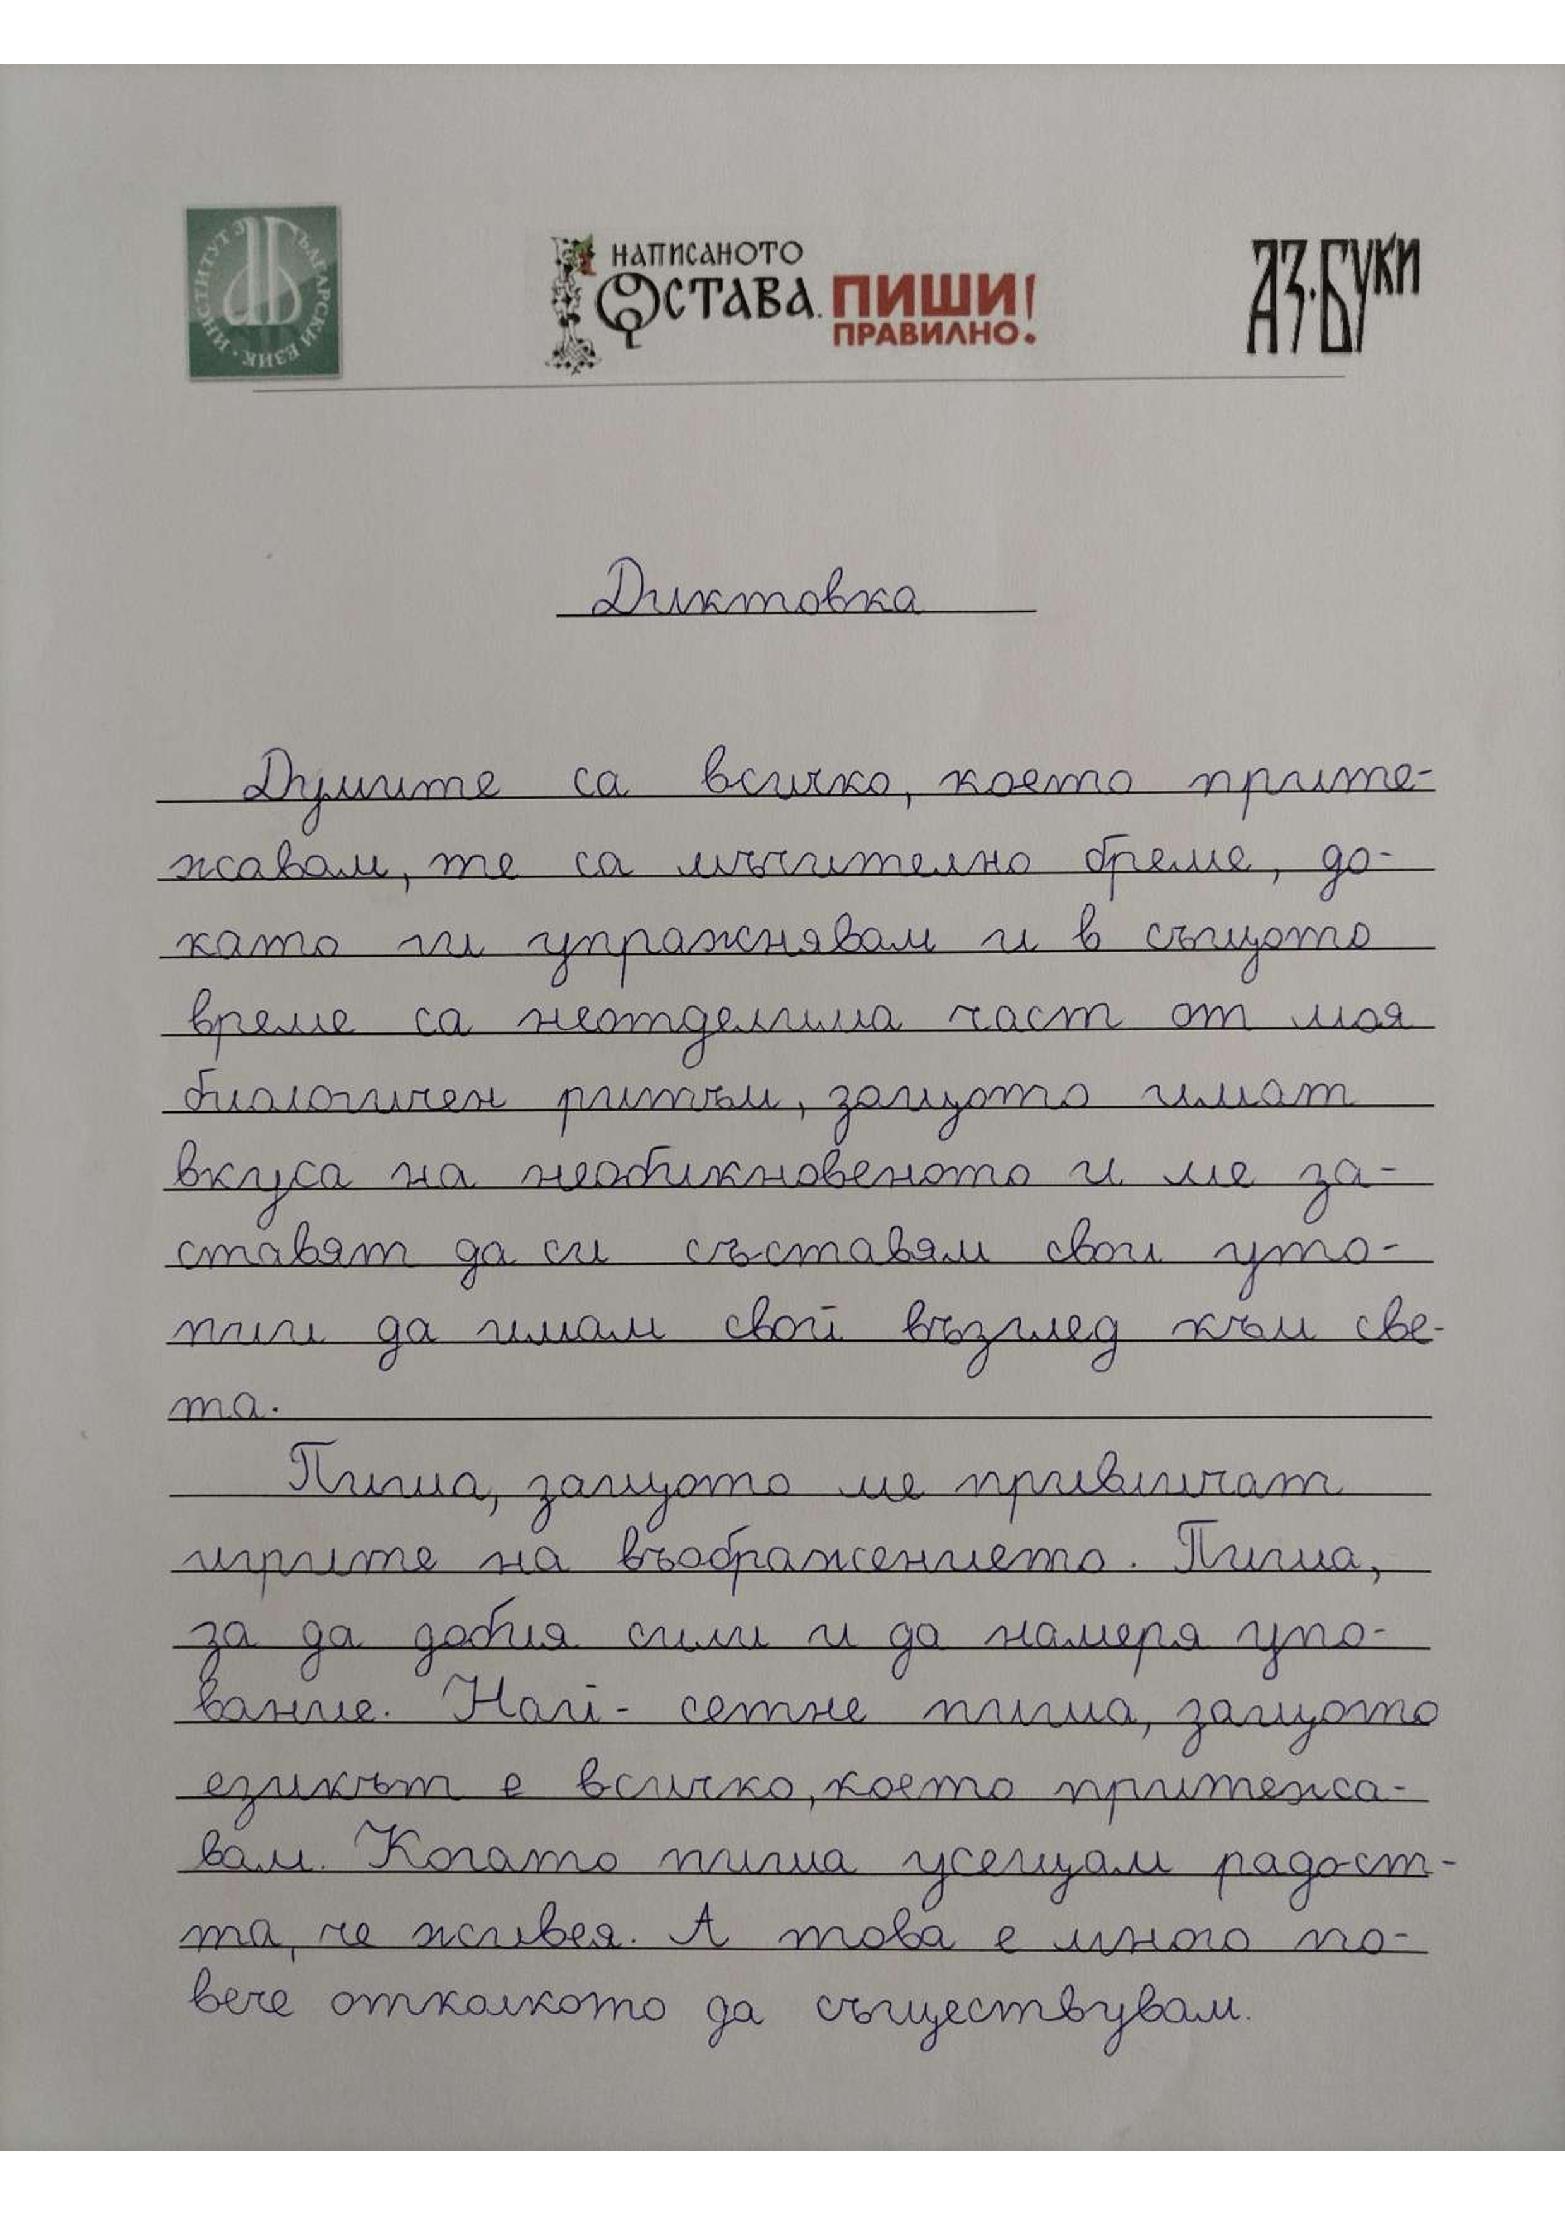 ИНСТИТУТ ЗА БЪЛГАРСКИ ЕЗИК
НАПИСАНОТО
ОСТАВА. ПИШИ
ПРАВИЛНО!
АЗ·БУКИ
Диктовка
Думите са всичко, което прите-
жавам, те са мъчително бреме, до-
като ги упражнявам и в същото
време са неотделима част от моя
биологичен ритъм, защото имат
вкуса на необикновеното и ме за-
ставят да си съставям свои уто-
пии да имам свой възглед към све-
та.
Пиша, защото ме привличат
игрите на въображението. Пиша,
за да добия сили и да намеря упо-
вание. Най- сетне пиша, защото
езикът е всичко, което притежа-
вам. Когато пиша усещам радост-
та, че живея. А това е много по-
вече отколкото да съществувам.